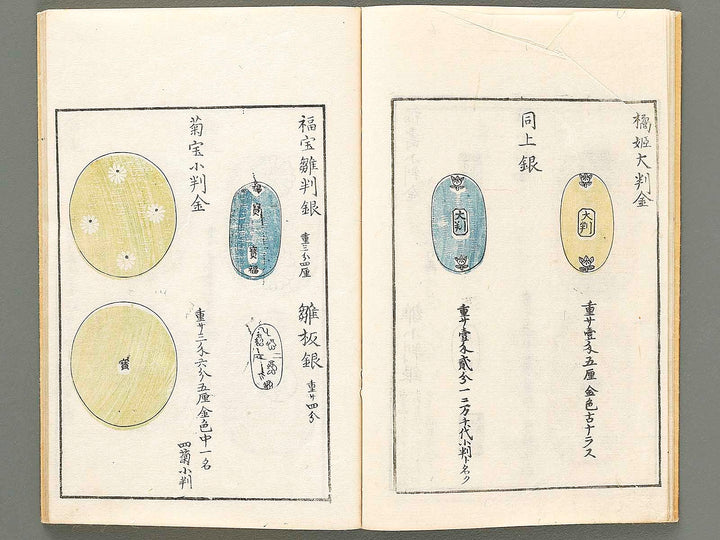 橘姫大判金
大判
重サ壹匁五厘 金色古ナラス
同上銀
大判
重サ壹匁貳分 一ニ万千代小判ト名ク
福宝雛判銀
重三分四厘
福
寳
寳
福
雛板銀
重サ四分
菊宝小判金
寳
重サ二匁六分五厘 金色中 一名
四菊小判